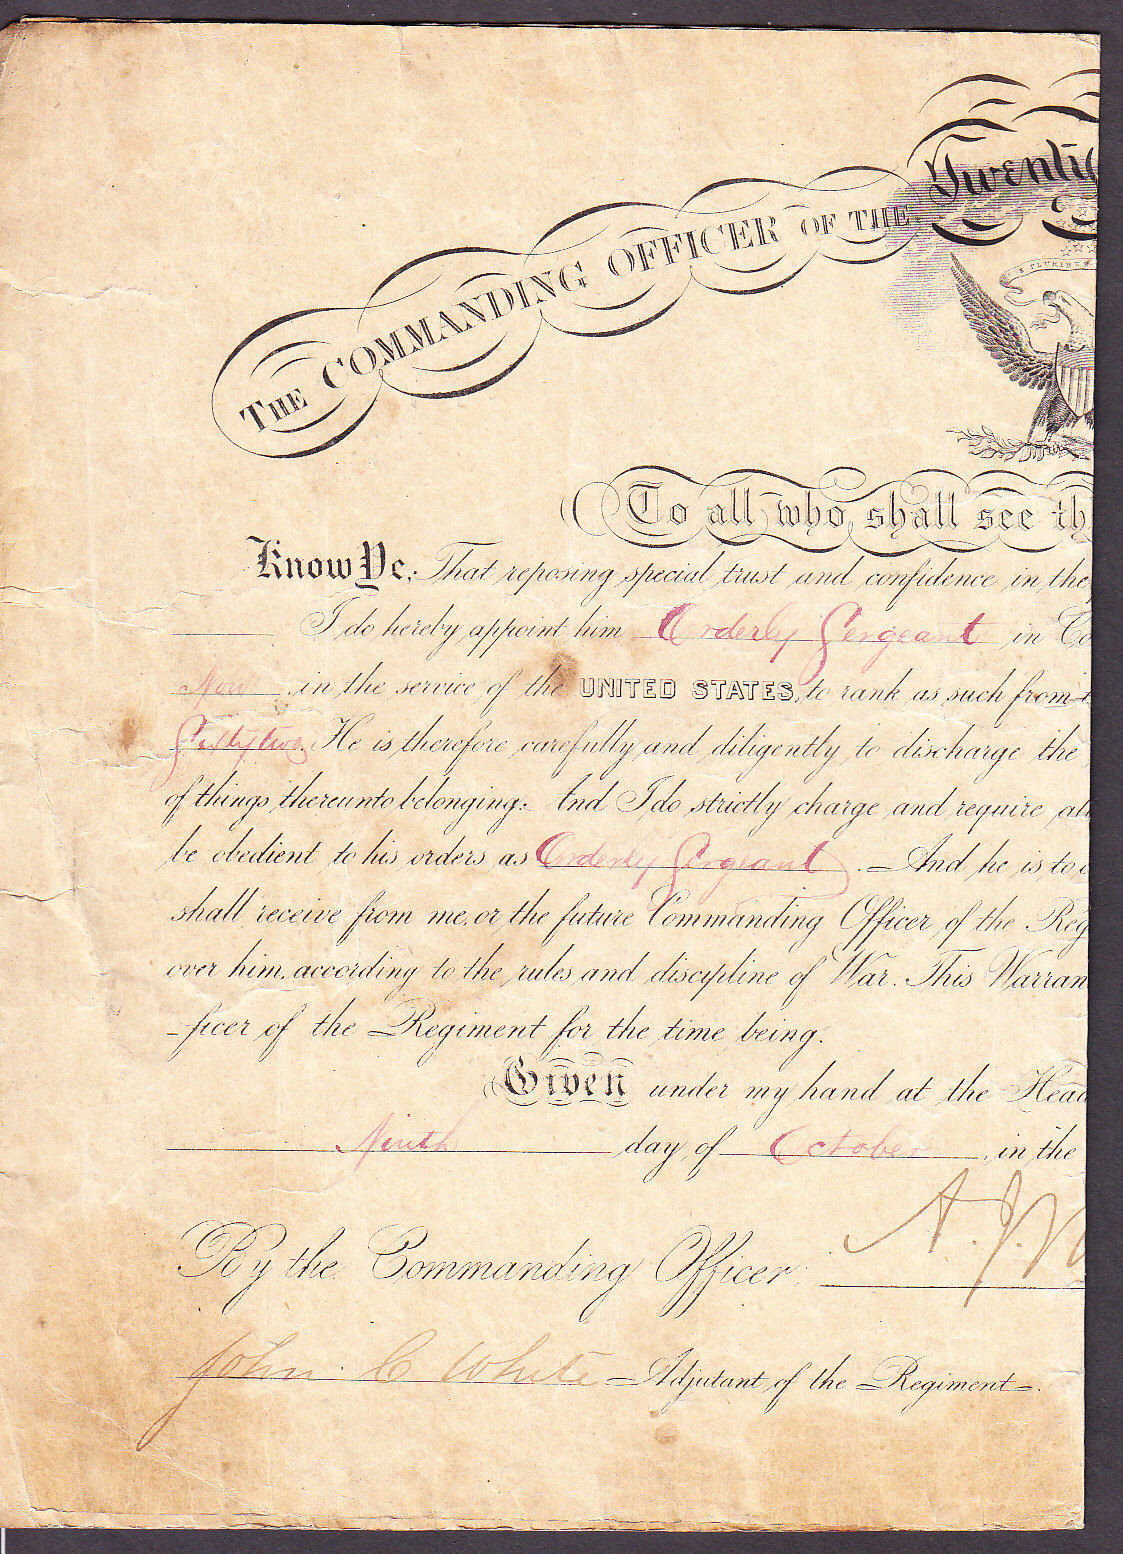 THE COMMANDING OFFICER OF THE Twentie
E PLURIBUS
To all who shall see th
Know Ye; That reposing special trust and confidence in the
I do hereby appoint him Orderly Sergeant in Co
Now in the service of the UNITED STATES, to rank as such from
Sixty two. He is therefore carefully and diligently to discharge the
of things thereunto belonging: And I do strictly charge and require all
be obedient to his orders as Orderly Sergeant. And he is to
shall receive from me, or the future Commanding Officer of the Reg
over him, according to the rules and discipline of War. This Warran
-ficer of the Regiment for the time being.
Given under my hand at the Head
Ninth day of October, in the
By the Commanding Officer: A. J.
John C White Adjutant of the Regiment